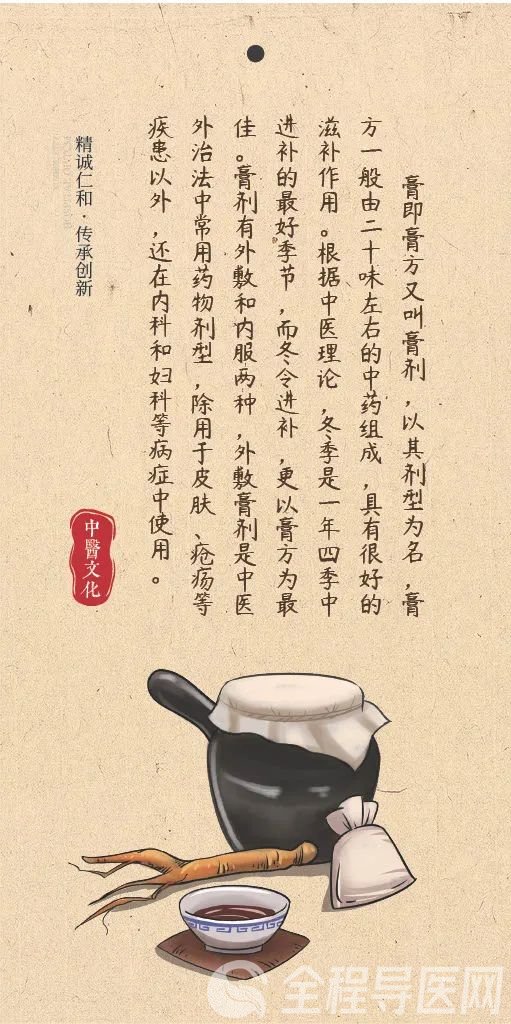 膏即膏方又叫膏剂，以其剂型为名，膏
方一般由二十味左右的中药组成，具有很好的
滋补作用。根据中医理论，冬季是一年四季中
进补的最好季节，而冬令进补，更以膏方为最
佳。膏剂有外敷和内服两种，外敷膏剂是中医
外治法中常用药物剂型，除用于皮肤、疮疡等
疾患以外，还在内科和妇科等病症中使用。
精诚仁和·传承创新
中醫文化
全程导医网